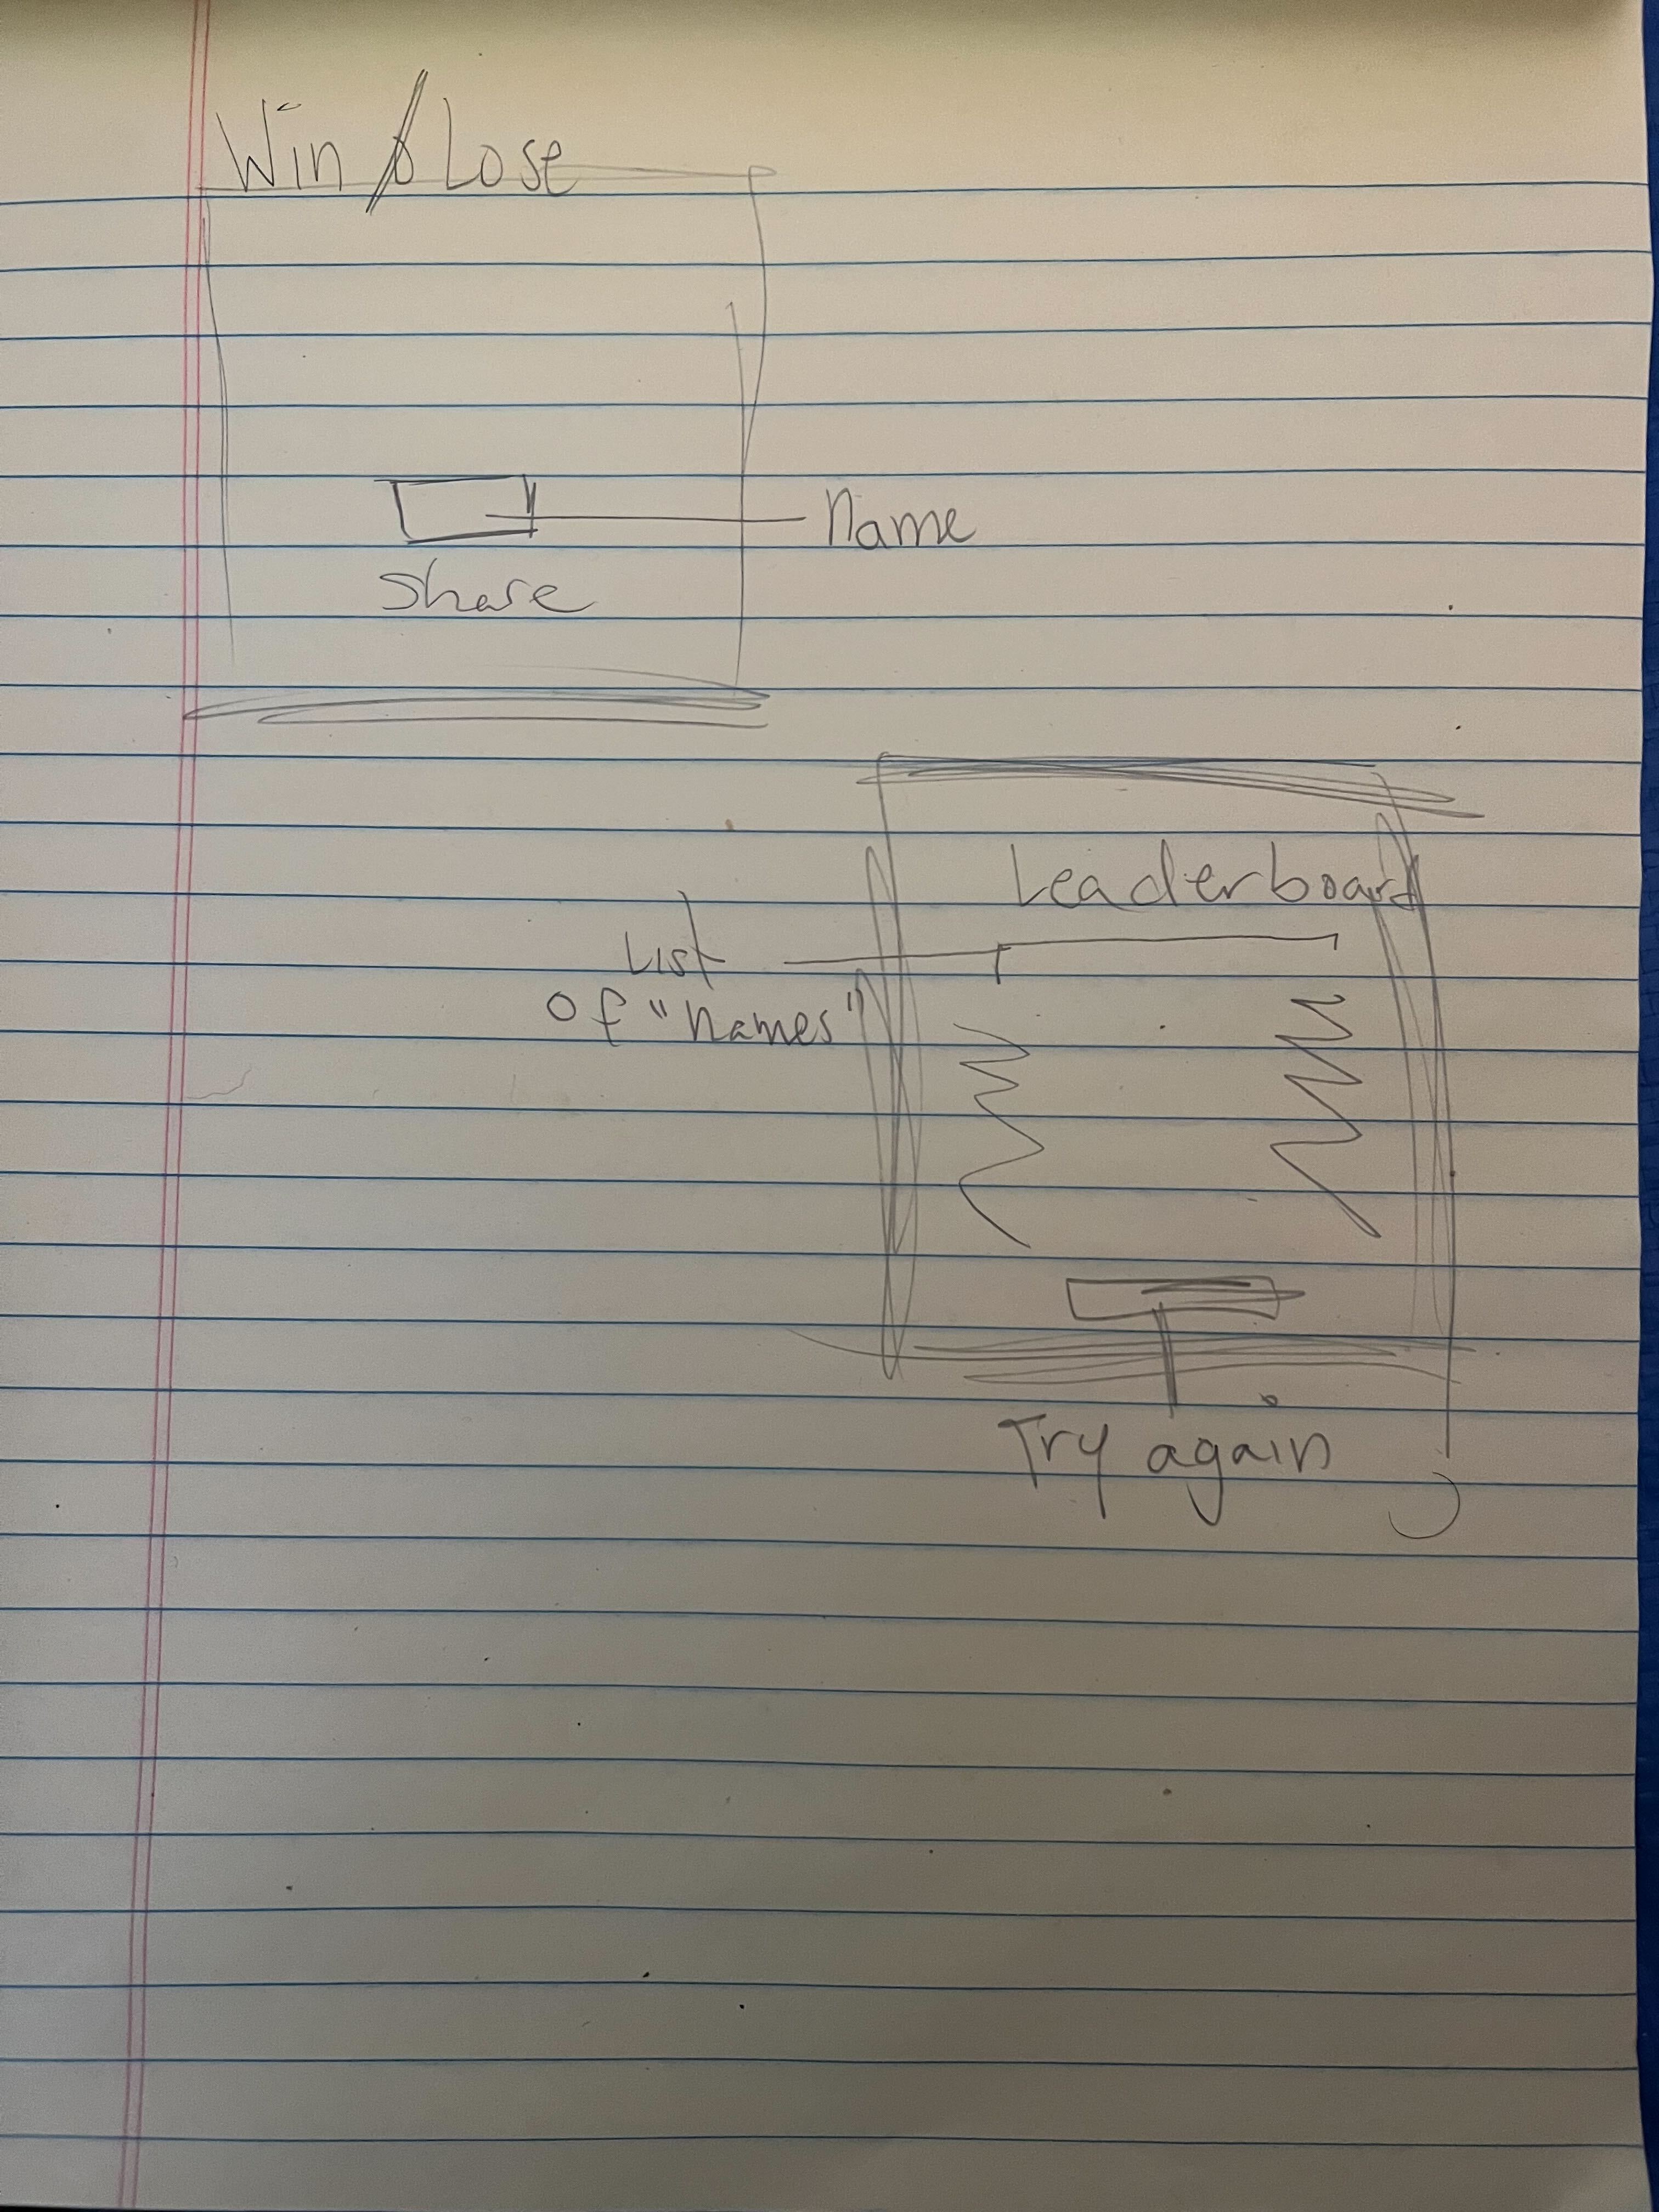 Win / Lose
Name
Share
Leaderboard
List
of "names"
Try again